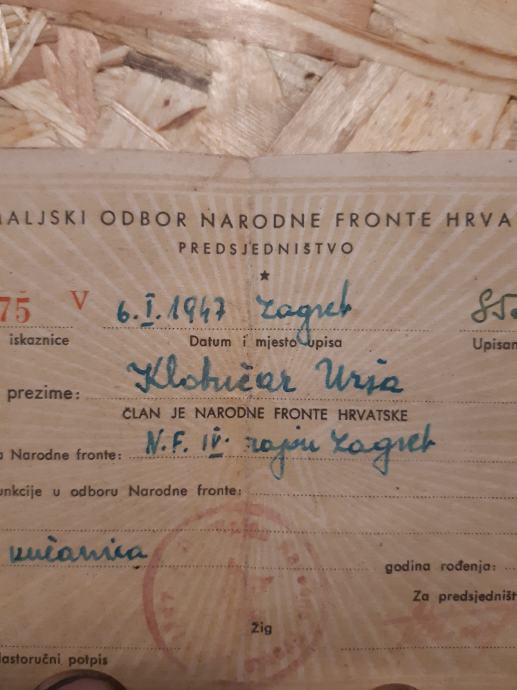 MALJSKI ODBOR NARODNE FRONTE HRVA
PREDSJEDNIŠTVO
75 V 6.I.1947 Zagreb
iskaznice Datum i mjesto upisa Upisan
prezime: Klobučar Urša
ČLAN JE NARODNE FRONTE HRVATSKE
a Narodne fronte: N.F. IV. rajon Zagreb
unkcije u odboru Narodne fronte:
kućanica
godina rođenja:
Za predsjedništ
Žig
lastoručni potpis